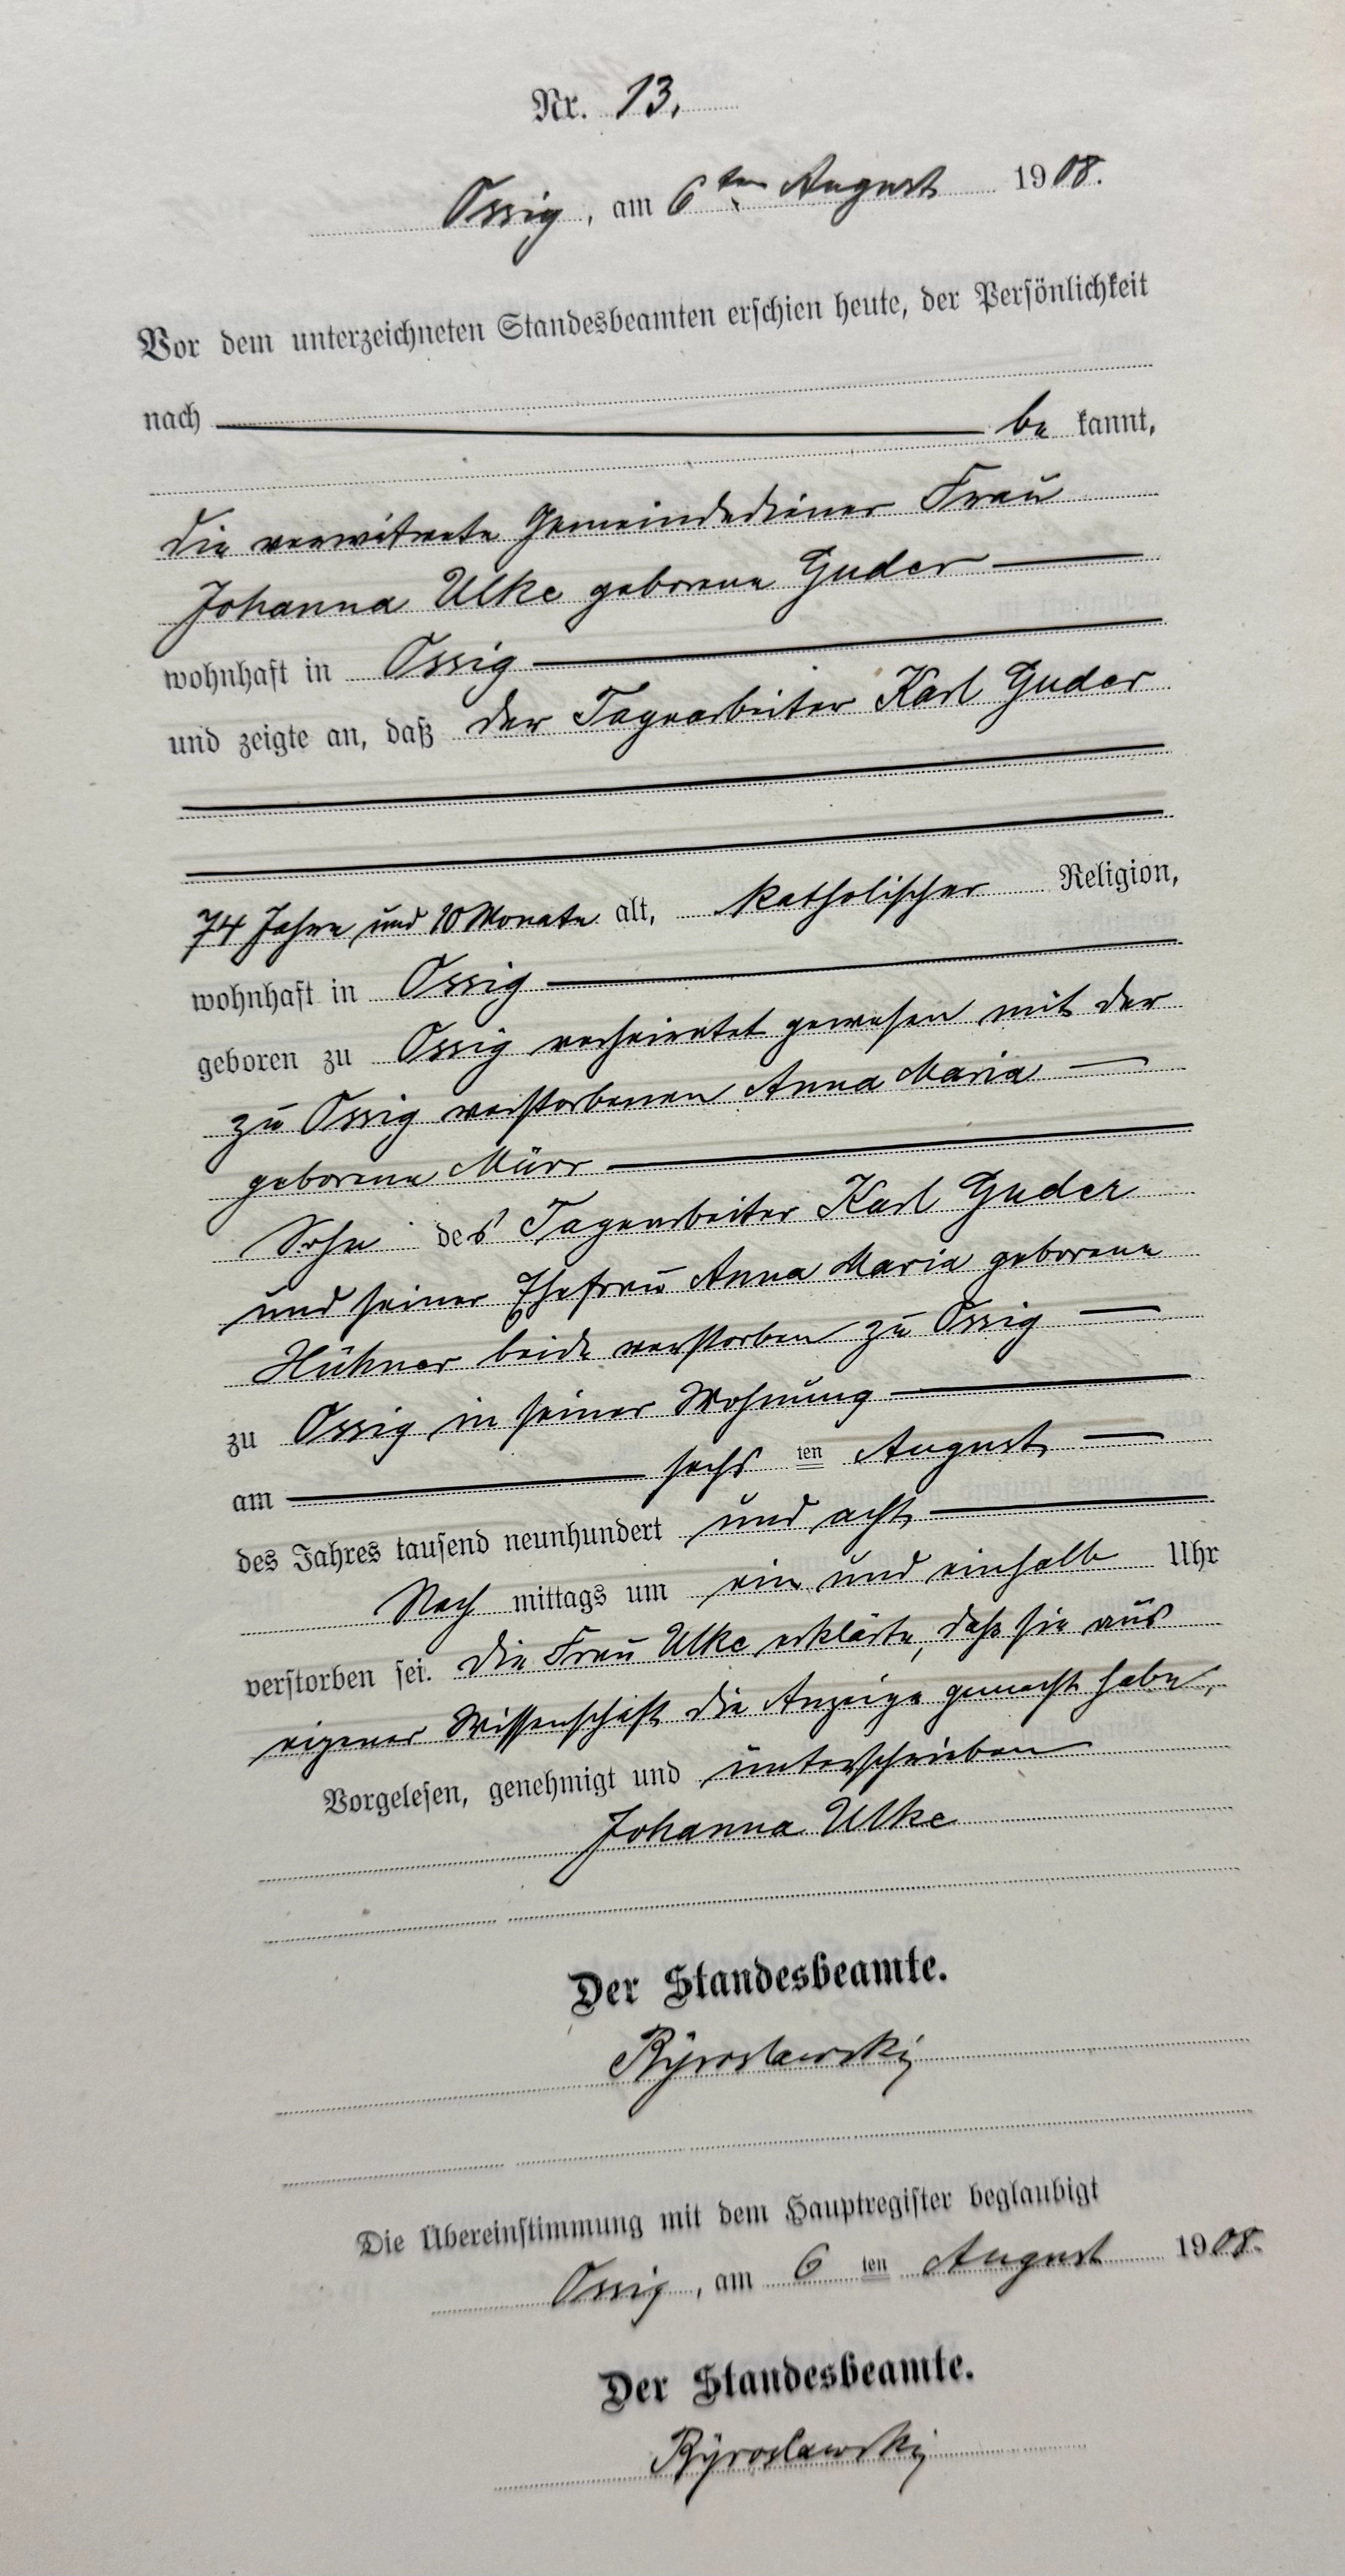 Nr. 13.
Ossig, am 6ten August 1908.
Vor dem unterzeichneten Standesbeamten erschien heute, der Persönlichkeit
nach be kannt,
die verwitwete Gemeindediener Frau
Johanna Ulke geborene Guder
wohnhaft in Ossig
und zeigte an, daß der Tagearbeiter Karl Guder
74 Jahre und 10 Monate alt, katholischer Religion,
wohnhaft in Ossig
geboren zu Ossig verheiratet gewesen mit der
zu Ossig verstorbenen Anna Maria
geborene Mürr
Sohn des Tagearbeiter Karl Guder
und seiner Ehefrau Anna Maria geborene
Hühner beide verstorben zu Ossig
zu Ossig in seiner Wohnung
am sechs ten August
des Jahres tausend neunhundert und acht
Nach mittags um ein und einhalb Uhr
verstorben sei. Die Frau Ulke erklärte, daß sie aus
eigener Wissenschaft die Anzeige gemacht habe.
Vorgelesen, genehmigt und unterschrieben
Johanna Ulke
Der Standesbeamte.
Die Übereinstimmung mit dem Hauptregister beglaubigt
Ossig, am 6 ten August 1908.
Der Standesbeamte.